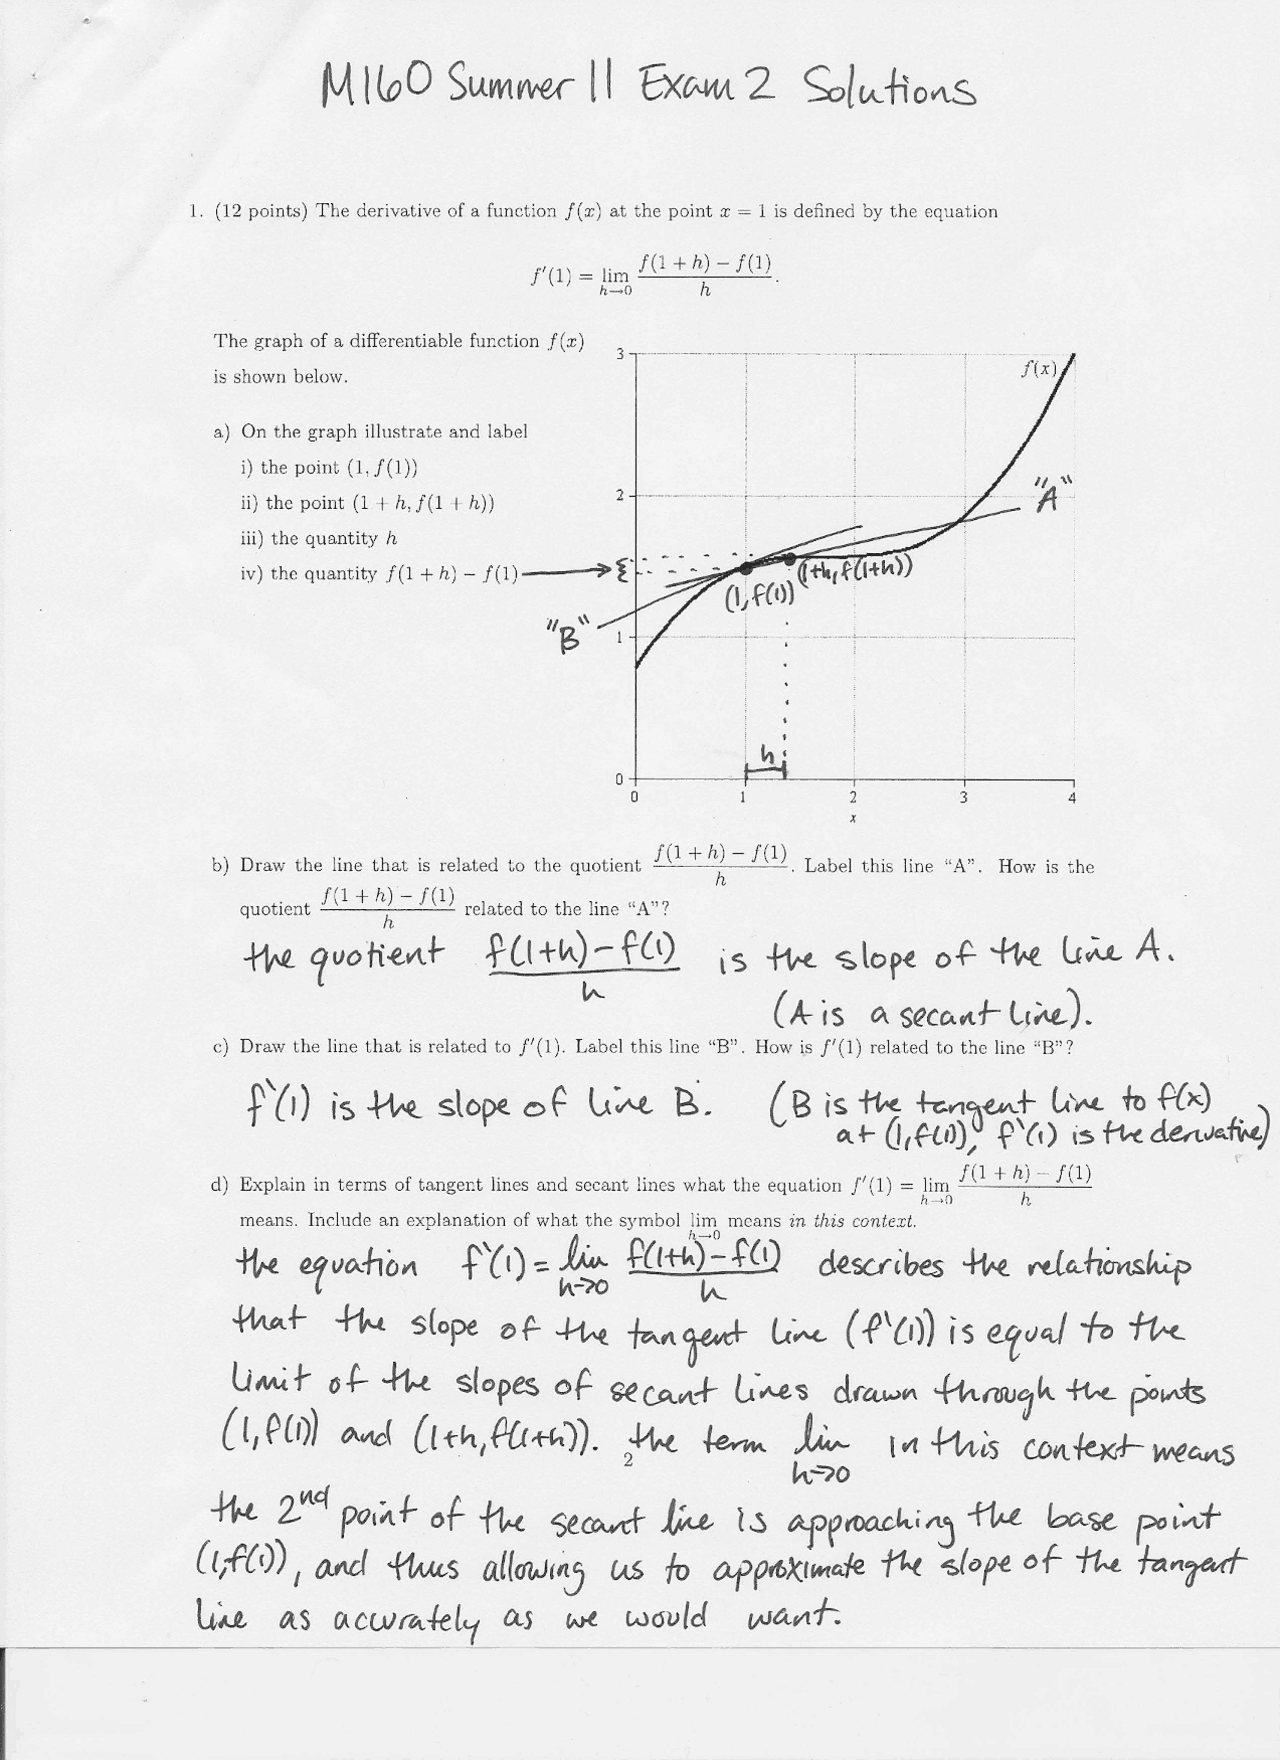 M160 Summer 11 Exam 2 Solutions
1. (12 points) The derivative of a function f(x) at the point x = 1 is defined by the equation
f′(1) = lim h→0 f(1 + h) − f(1) / h.
The graph of a differentiable function f(x)
is shown below.
a) On the graph illustrate and label
i) the point (1, f(1))
ii) the point (1 + h, f(1 + h))
iii) the quantity h
iv) the quantity f(1 + h) − f(1)
3
f(x)
2
"A"
(1+h, f(1+h))
(1, f(1))
"B"
1
h
0
0 1 2 3 4
x
b) Draw the line that is related to the quotient f(1 + h) − f(1) / h. Label this line “A”. How is the
quotient f(1 + h) − f(1) / h related to the line “A”?
the quotient f(1+h)-f(1) / h is the slope of the line A.
(A is a secant line).
c) Draw the line that is related to f′(1). Label this line “B”. How is f′(1) related to the line “B”?
f'(1) is the slope of line B. (B is the tangent line to f(x)
at (1,f(1)), f'(1) is the derivative)
d) Explain in terms of tangent lines and secant lines what the equation f′(1) = lim h→0 f(1 + h) − f(1) / h
means. Include an explanation of what the symbol lim h→0 means in this context.
the equation f'(1) = lim h→0 f(1+h)-f(1) / h describes the relationship
that the slope of the tangent line (f'(1)) is equal to the
limit of the slopes of secant lines drawn through the points
(1,f(1)) and (1+h,f(1+h)). the term lim h→0 in this context means
2
the 2nd point of the secant line is approaching the base point
(1,f(1)), and thus allowing us to approximate the slope of the tangent
line as accurately as we would want.